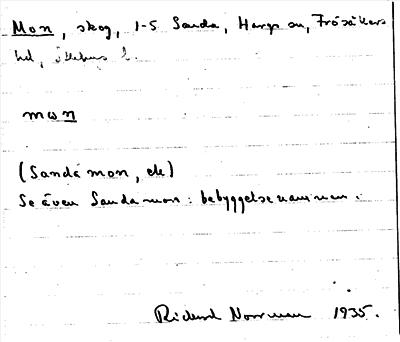 Mon, skog, 1-5 Sanda, Hargs sn, Frösåkers
hd, Sthlms l.
mωn
(Sanda mon, ek)
Se även Sandamon: bebyggelsenamnen.
Rickard Norrman 1935.